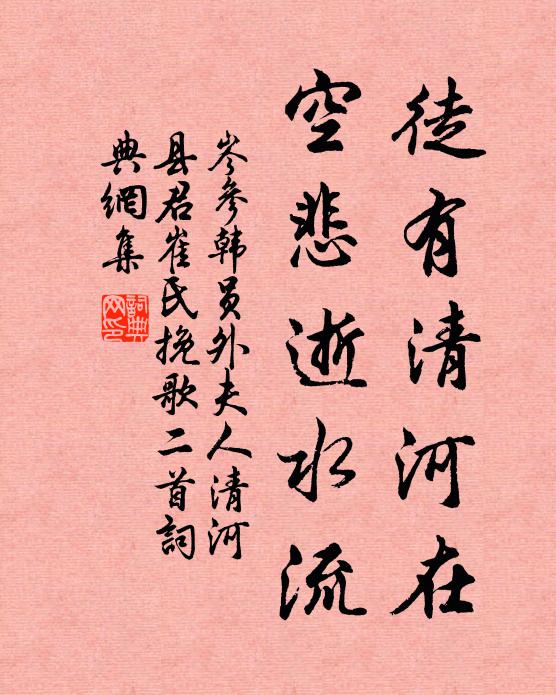 徒有清河在
空悲逝水流
岑參韩员外夫人清河
县君崔氏挽歌二首詞
典網集
詞典网印